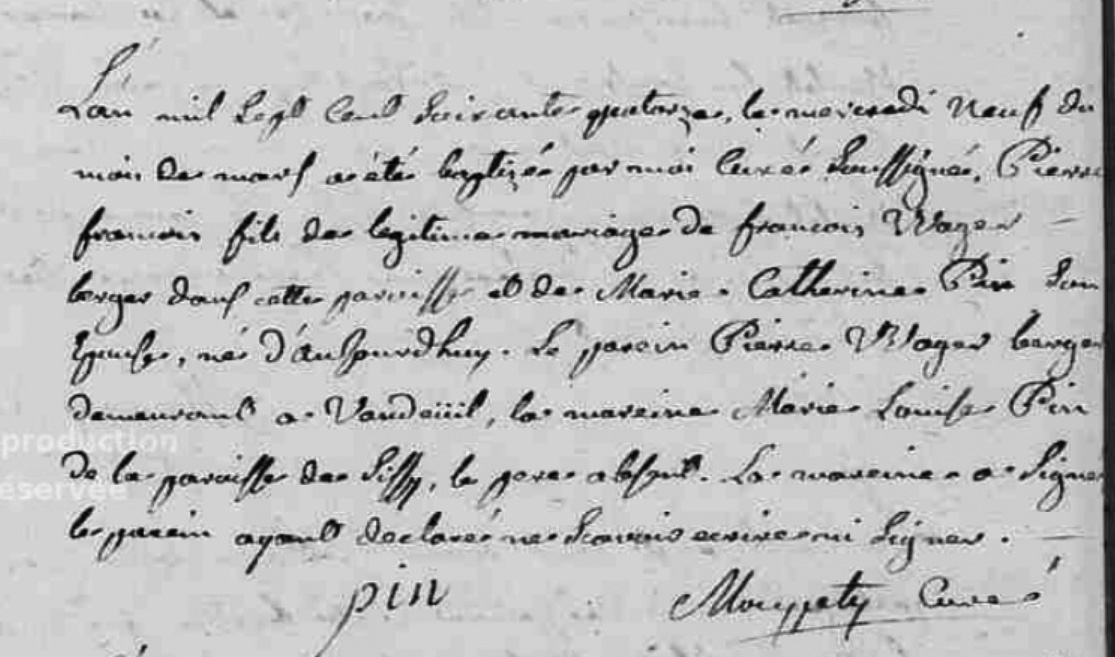 L'an mil sept cent soixante quatorze, le mercredi neuf du
mois de mars a été baptizé par moi curé soussigné, Pierre
francois fils de legitime mariage de francois Wager
berger dans cette paroisse et de Marie Catherine Pin son
Epouse, né d'aujourdhuy. Le parein Pierre Wager berger
demeurant a Vandeüil, la mareine Marie Louise Pin
production
de la paroisse de Sissy, le pere absent. La mareine a signé
réservée
le parein ayant declaré ne scavoir ecrire ni signer.
pin
curé